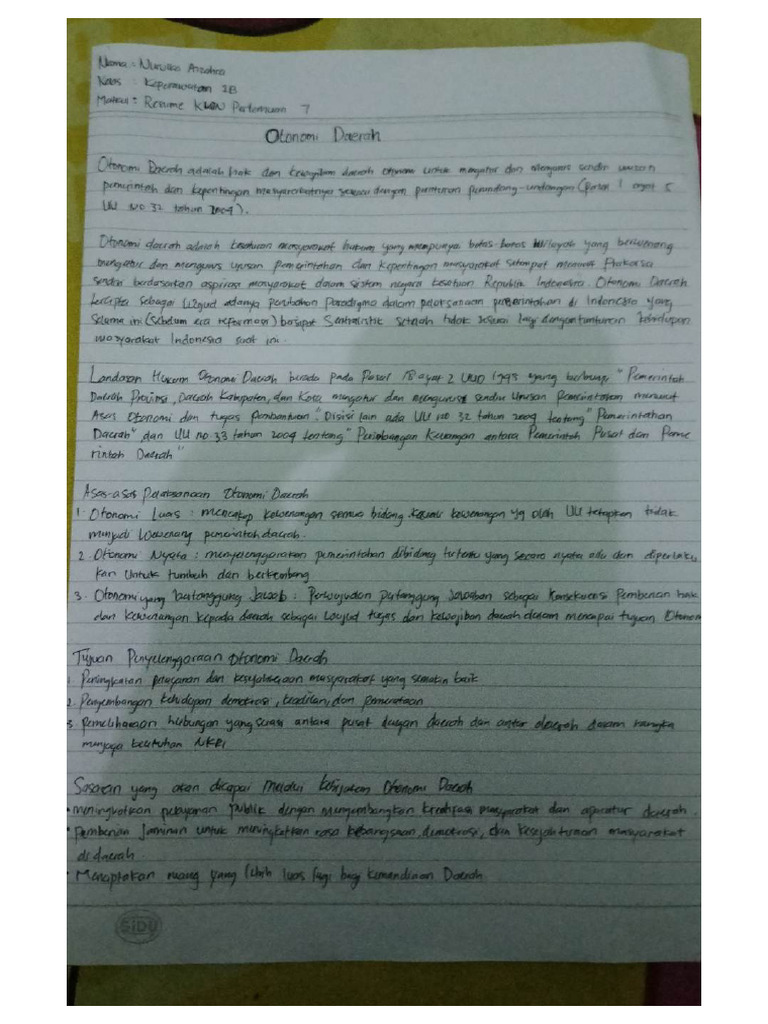 Nama : Nurulias Azzahra
Kelas : Keperawatan 2B
Materi : Resume KWN Pertemuan 7
Otonomi Daerah
Otonomi Daerah adalah hak dan kewajiban daerah otonom untuk mengatur dan mengurus sendiri urusan
pemerintah dan kepentingan masyarakatnya sesuai dengan peraturan perundang-undangan (pasal 1 ayat 5
UU NO 32 tahun 2004).
Otonomi daerah adalah kesatuan masyarakat hukum yang mempunyai batas-batas wilayah yang berwenang
mengatur dan mengurus urusan pemerintahan dan kepentingan masyarakat setempat menurut Prakarsa
sendiri berdasarkan aspirasi masyarakat dalam sistem negara kesatuan Republik Indonesia. Otonomi Daerah
tercipta sebagai wujud adanya perubahan Paradigma dalam pelaksanaan pemerintahan di Indonesia yang
selama ini (sebelum era reformasi) bersifat Sentralistik setelah tidak sesuai lagi dengan tuntunan kehidupan
masyarakat Indonesia saat ini.
Landasan Hukum Otonomi Daerah berada pada Pasal 18 ayat 2 UUD 1945 yang berbunyi "Pemerintah
Daerah Provinsi, Daerah Kabupaten, dan Kota mengatur dan mengurus sendiri Urusan Pemerintahan menurut
Asas Otonomi dan tugas pembantuan". Disisi lain ada UU NO 32 tahun 2004 tentang "Pemerintahan
Daerah" dan UU no 33 tahun 2004 tentang "Perimbangan Keuangan antara Pemerintah Pusat dan Peme
rintah Daerah"
Asas-asas Pelaksanaan Otonomi Daerah
1. Otonomi Luas : mencakup kewenangan semua bidang kecuali kewenangan yg oleh UU tetapkan tidak
menjadi wewenang pemerintah daerah.
2. Otonomi Nyata : menyelenggarakan pemerintahan dibidang tertentu yang secara nyata ada dan diperlaku
kan untuk tumbuh dan berkembang
3. Otonomi yang bertanggung Jawab : Perwujudan pertanggung jawaban sebagai Konsekuensi Pemberian hak
dan kewenangan kepada daerah sebagai wujud tugas dan kewajiban daerah dalam mencapai tujuan Otonom
Tujuan Penyelenggaraan Otonomi Daerah
1. Peningkatan pelayanan dan kesejahteraan masyarakat yang semakin baik
2. Pengembangan kehidupan demokrasi, keadilan, dan pemerataan
3. pemeliharaan hubungan yang serasi antara pusat dengan daerah dan antar daerah dalam rangka
menjaga keutuhan NKRI
Sasaran yang akan dicapai melalui kebijakan Otonomi Daerah
• meningkatkan pelayanan publik dengan mengembangkan kreativitas masyarakat dan aparatur daerah.
• Pemberian Jaminan untuk meningkatkan rasa kebangsaan, demokrasi, dan kesejahteraan masyarakat
di daerah.
• Menciptakan ruang yang lebih luas lagi bagi kemandirian Daerah.
SiDU